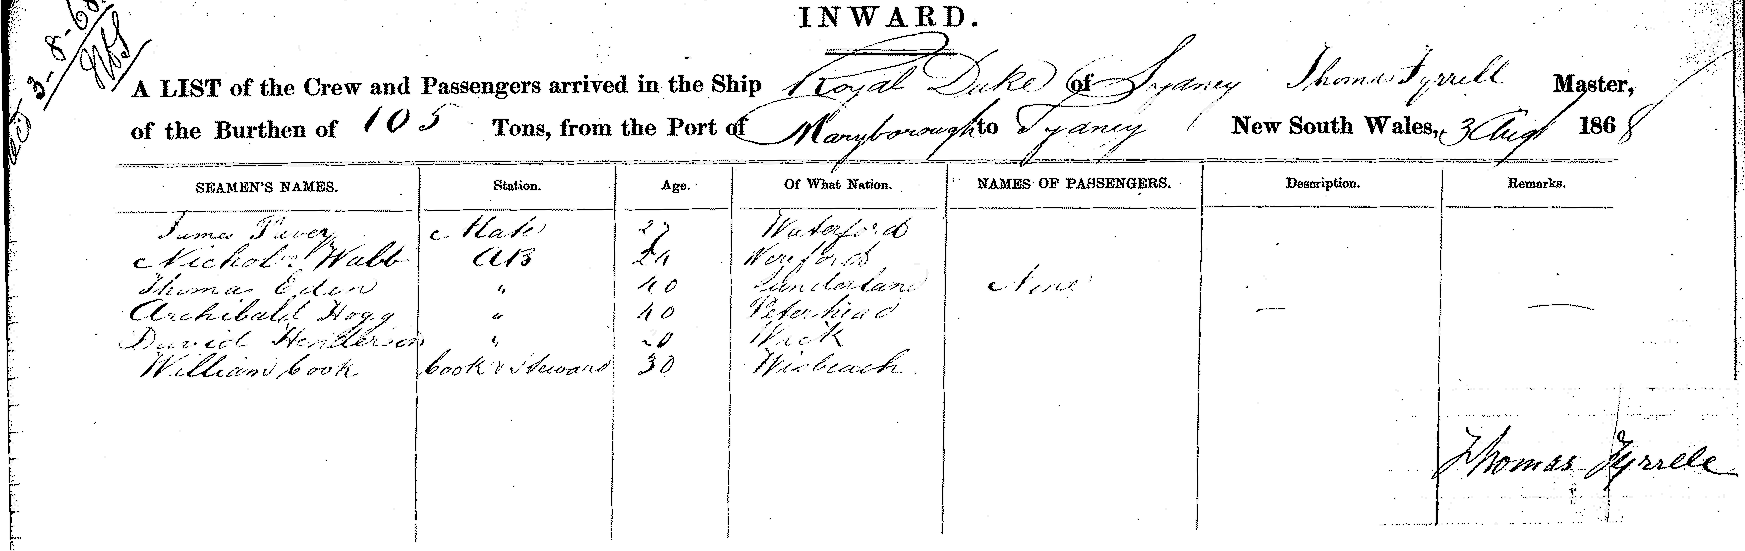 INWARD.
3-8-68
A LIST of the Crew and Passengers arrived in the Ship Royal Duke of Sydney Thomas Tyrrell Master,
of the Burthen of 105 Tons, from the Port of Maryborough to Sydney New South Wales, 3 Aug 1868
SEAMEN'S NAMES. Station. Age. Of What Nation. NAMES OF PASSENGERS. Description. Remarks.
James Mate 27 Waterford
Nichols Wabb AB Wexford
Thomas Eden " 40 Sunderland None
Archibald Hogg " 40 Peterhead — —
David Henderson " 20 Wick
William Cook Cook & Steward 30 Wisbeach
Thomas Tyrrell